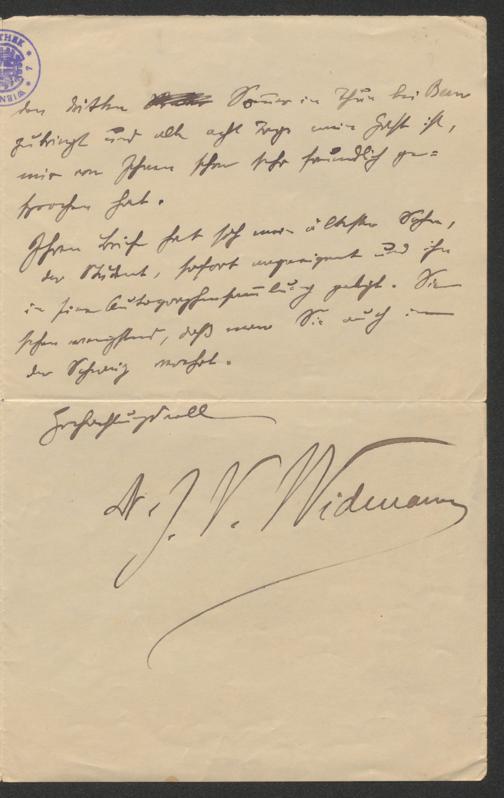 den dritten Sommer in Thun bei Bern
zubringt und alle acht Tage mein Gast ist,
mir von Ihnen schon sehr freundlich ge=
sprochen hat.
Ihren Brief hat sich mein ältester Sohn,
der Student, sofort angeeignet und ihn
in seine Autographensammlung gelegt. Sie
sehen wenigstens, daß man Sie auch in
der Schweiz verehrt.
Hochachtungsvoll
Dr. J. V. Widmann